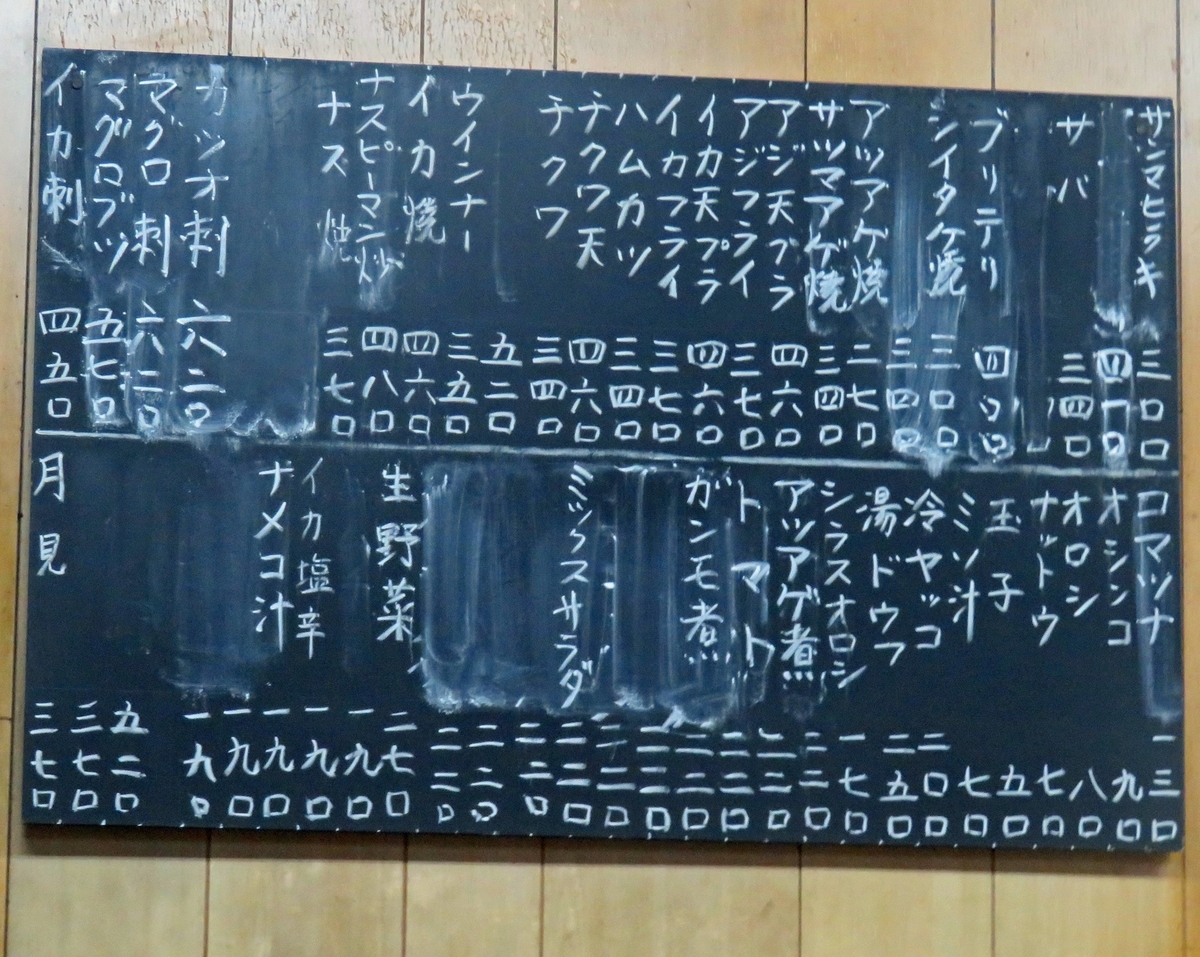 サンマヒラキ 三〇〇
四一〇
サバ 三四〇
ブリテリ 四〇〇
シイタケ焼 三〇〇
三四〇
アツアゲ焼 二七〇
サツマアゲ焼 三四〇
アジ天プラ 四六〇
アジフライ 三七〇
イカ天プラ 四六〇
イカフライ 三七〇
ハムカツ 三四〇
チクワ天 四六〇
チクワ 三四〇
五二〇
ウインナー 三五〇
イカ焼 四六〇
ナスピーマン炒 四八〇
ナス焼 三七〇
カツオ刺 六二〇
マグロ刺 六二〇
マグロブツ 五七〇
イカ刺 四五〇
コマツナ 一三〇
オシンコ 九〇
オロシ 八〇
ナットウ 七〇
玉子 五〇
ミソ汁 七〇
冷ヤッコ 二〇〇
湯ドウフ 二五〇
シラスオロシ 一七〇
アツアゲ煮 二二〇
トマト 二二〇
ガンモ煮 二二〇
二二〇
二二〇
ミックスサラダ 二二〇
二二〇
二二〇
二二〇
生野菜 二七〇
一九〇
イカ塩辛 一九〇
ナメコ汁 一九〇
一九〇
一九〇
五二〇
三七〇
月見 三七〇